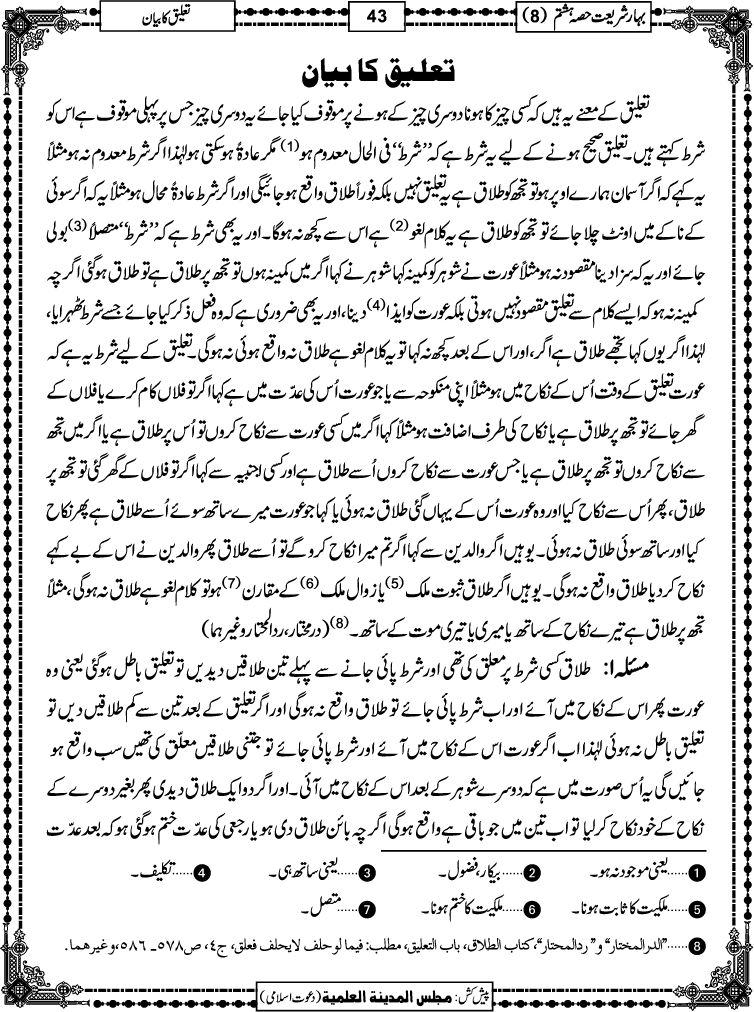 بہارِ شریعت حصہ ہشتم (8)
43
تعلیق کا بیان
تعلیق کا بیان
تعلیق کے معنے یہ ہیں کہ کسی چیز کا ہونا دوسری چیز کے ہونے پر موقوف کیا جائے یہ دوسری چیز جس پر پہلی موقوف ہے اس کو
شرط کہتے ہیں۔ تعلیق صحیح ہونے کے لیے یہ شرط ہے کہ ”شرط“ فی الحال معدوم ہو(1) مگر عادۃً ہوسکتی ہو لہٰذا اگر شرط معدوم نہ ہو مثلاً
یہ کہے کہ اگر آسمان ہمارے اوپر ہو تو تجھ کو طلاق ہے یہ تعلیق نہیں بلکہ فوراً طلاق واقع ہوجائیگی اور اگر شرط عادۃً محال ہو مثلاً یہ کہ اگر سوئی
کے ناکے میں اونٹ چلا جائے تو تجھ کو طلاق ہے یہ کلام لغو(2) ہے اس سے کچھ نہ ہوگا۔ اور یہ بھی شرط ہے کہ ”شرط“ متصلاً(3) بولی
جائے اور یہ کہ سزا دینا مقصود نہ ہو مثلاً عورت نے شوہر کو کمینہ کہا شوہر نے کہا اگر میں کمینہ ہوں تو تجھ پر طلاق ہے تو طلاق ہوگئی اگرچہ
کمینہ نہ ہو کہ ایسے کلام سے تعلیق مقصود نہیں ہوتی بلکہ عورت کو ایذا(4) دینا، اور یہ بھی ضروری ہے کہ وہ فعل ذکر کیا جائے جسے شرط ٹھہرایا،
لہٰذا اگر یوں کہا تجھے طلاق ہے اگر، اور اس کے بعد کچھ نہ کہا تو یہ کلام لغو ہے طلاق نہ واقع ہوئی نہ ہوگی۔ تعلیق کے لیے شرط یہ ہے کہ
عورت تعلیق کے وقت اُس کے نکاح میں ہو مثلاً اپنی منکوحہ سے یا جو عورت اُس کی عدّت میں ہے کہا اگر تو فلاں کام کرے یا فلاں کے
گھر جائے تو تجھ پر طلاق ہے یا نکاح کی طرف اضافت ہو مثلاً کہا اگر میں کسی عورت سے نکاح کروں تو اُس پر طلاق ہے یا اگر میں تجھ
سے نکاح کروں تو تجھ پر طلاق ہے یا جس عورت سے نکاح کروں اُسے طلاق ہے اور کسی اجنبیہ سے کہا اگر تو فلاں کے گھر گئی تو تجھ پر
طلاق، پھر اُس سے نکاح کیا اور وہ عورت اُس کے یہاں گئی طلاق نہ ہوئی یا کہا جو عورت میرے ساتھ سوئے اُسے طلاق ہے پھر نکاح
کیا اور ساتھ سوئی طلاق نہ ہوئی۔ یوہیں اگر والدین سے کہا اگر تم میرا نکاح کروگے تو اُسے طلاق پھر والدین نے اس کے بے کہے
نکاح کردیا طلاق واقع نہ ہوگی۔ یوہیں اگر طلاق ثبوت ملک(5) یا زوال ملک(6) کے مقارن(7) ہو تو کلام لغو ہے طلاق نہ ہوگی، مثلاً
تجھ پر طلاق ہے تیرے نکاح کے ساتھ یا میری یا تیری موت کے ساتھ۔(8) (درمختار، ردالمحتار وغیرہما)
مسئلہ ۱: طلاق کسی شرط پر معلق کی تھی اور شرط پائی جانے سے پہلے تین طلاقیں دیدیں تو تعلیق باطل ہوگئی یعنی وہ
عورت پھر اس کے نکاح میں آئے اور اب شرط پائی جائے تو طلاق واقع نہ ہوگی اور اگر تعلیق کے بعد تین سے کم طلاقیں دیں تو
تعلیق باطل نہ ہوئی لہٰذا اب اگر عورت اس کے نکاح میں آئے اور شرط پائی جائے تو جتنی طلاقیں معلّق کی تھیں سب واقع ہو
جائیں گی یہ اُس صورت میں ہے کہ دوسرے شوہر کے بعد اس کے نکاح میں آئی۔ اور اگر دو ایک طلاق دیدی پھر بغیر دوسرے کے
نکاح کے خود نکاح کرلیا تو اب تین میں جو باقی ہے واقع ہوگی اگرچہ بائن طلاق دی ہو یا رجعی کی عدّت ختم ہوگئی ہو کہ بعد عدّت
1 ......یعنی موجود نہ ہو۔ 2 ......بیکار، فضول۔ 3 ......یعنی ساتھ ہی۔ 4 ......تکلیف۔
5 ......ملکیت کا ثابت ہونا۔ 6 ......ملکیت کا ختم ہونا۔ 7 ......متصل۔
8 ......”الدرالمختار“ و ”ردالمحتار“، کتاب الطلاق، باب التعلیق، مطلب: فیما لو حلف لایحلف فعلق، ج٤، ص٥٧٨۔٥٨٦، وغیرھما.
پیش کش: مجلس المدینة العلمیة (دعوتِ اسلامی)